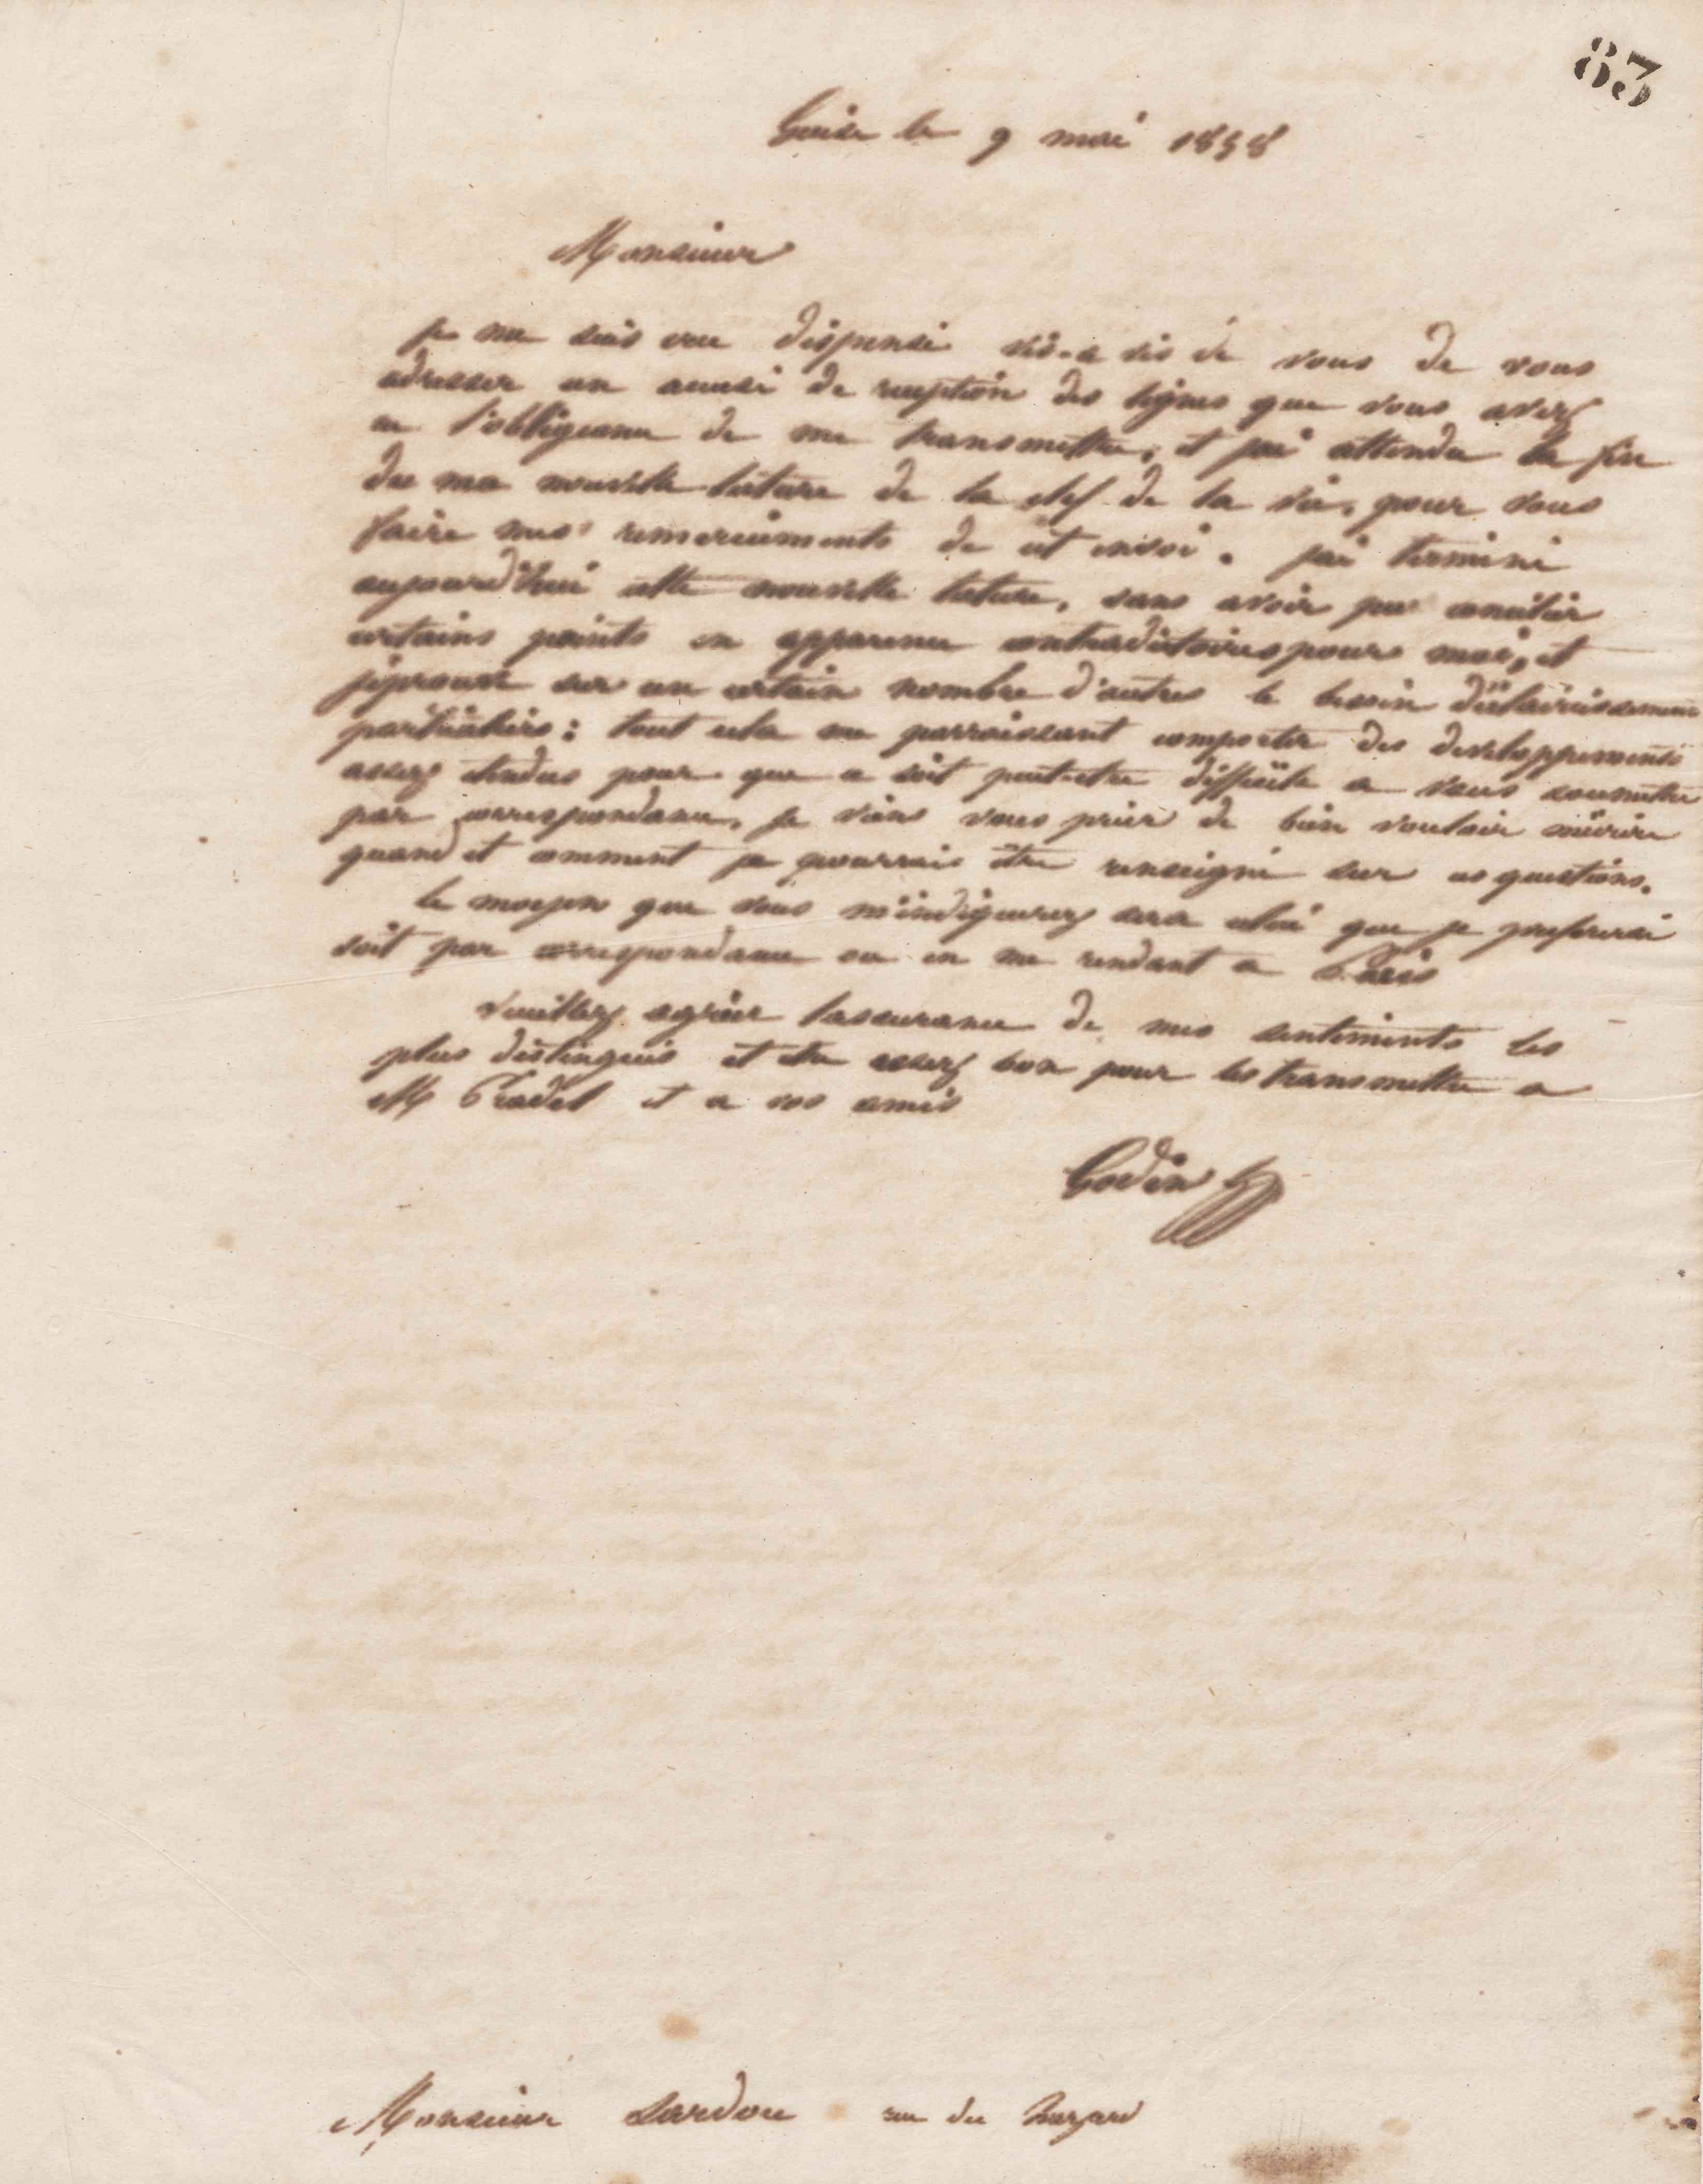 83
Guise le 9 mai 1858
Monsieur
je me suis cru dispensé vis-a vis de vous de vous
adresser un accusé de reception des lignes que vous avez
eu l'obligeance de me transmettre, et j'ai attendu la fin
de ma nouvelle lecture de la clef de la vie, pour vous
faire mes remerciements de cet envoi. j'ai terminé
aujourd'hui cette nouvelle lecture, sans avoir pu concilier
certains points en apparence contradictoires pour moi, et
j'éprouve sur un certain nombre d'autres le besoin d'éclaircissements
particuliers: tout cela me parraissant comporter des developpements
assez etendus pour que ce soit peut-etre difficile a vous soumettre
par correspondance, je viens vous prier de bien vouloir m'écrire
quand et comment je pourrais être renseigné sur ces questions.
le moyen que vous m'indiquerez sera celui que je prefererai
soit par correspondance ou en me rendant a Paris
Veuillez agréer l'assurance de mes sentiments les
plus distingués et etre assez bon pour les transmettre a
M Pradel et a vos amis
Godin
Monsieur Sardou rue du hazard